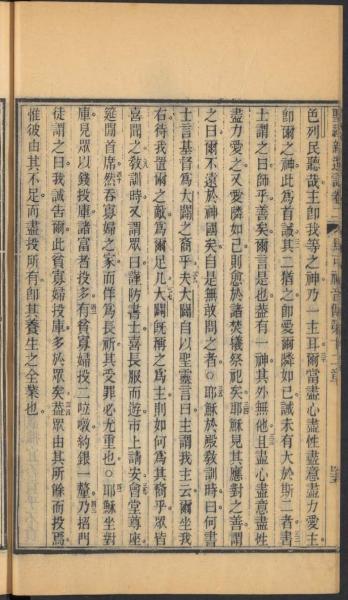 馬可福音傳第十二章
色列民聽哉主卽我等之神乃一主耳爾當盡心盡性盡意盡力愛主
卽爾之神此爲首誡其二猶之卽愛爾隣如己誡未有大於斯二者書
士謂之曰師乎善矣爾言是也蓋有一神其外無他且盡心盡意盡性
盡力愛之又愛隣如己則愈於諸焚犧祭祀矣耶穌見其應對之善謂
之曰爾不遠於神國矣自是無敢問之者○耶穌於殿敎訓時曰何書
士言基督爲大闢之裔乎夫大闢自以聖靈言曰主謂我主云爾坐我
右待我置爾之敵爲爾足几大闢旣稱之爲主則如何爲其裔乎眾皆
喜聞之敎訓時又謂眾曰謹防書士喜長服而遊市上請安會堂尊座
筵間首席然吞寡婦之家而佯爲長祈其受罪必尤重也○耶穌坐對
庫見眾以錢投庫諸富者投多有貧寡婦投二約銀一釐乃招門
徒謂之曰我誠告爾此貧寡婦投庫多於眾矣蓋眾由其所餘而投焉
惟彼由其不足而盡投所有卽其養生之全業也